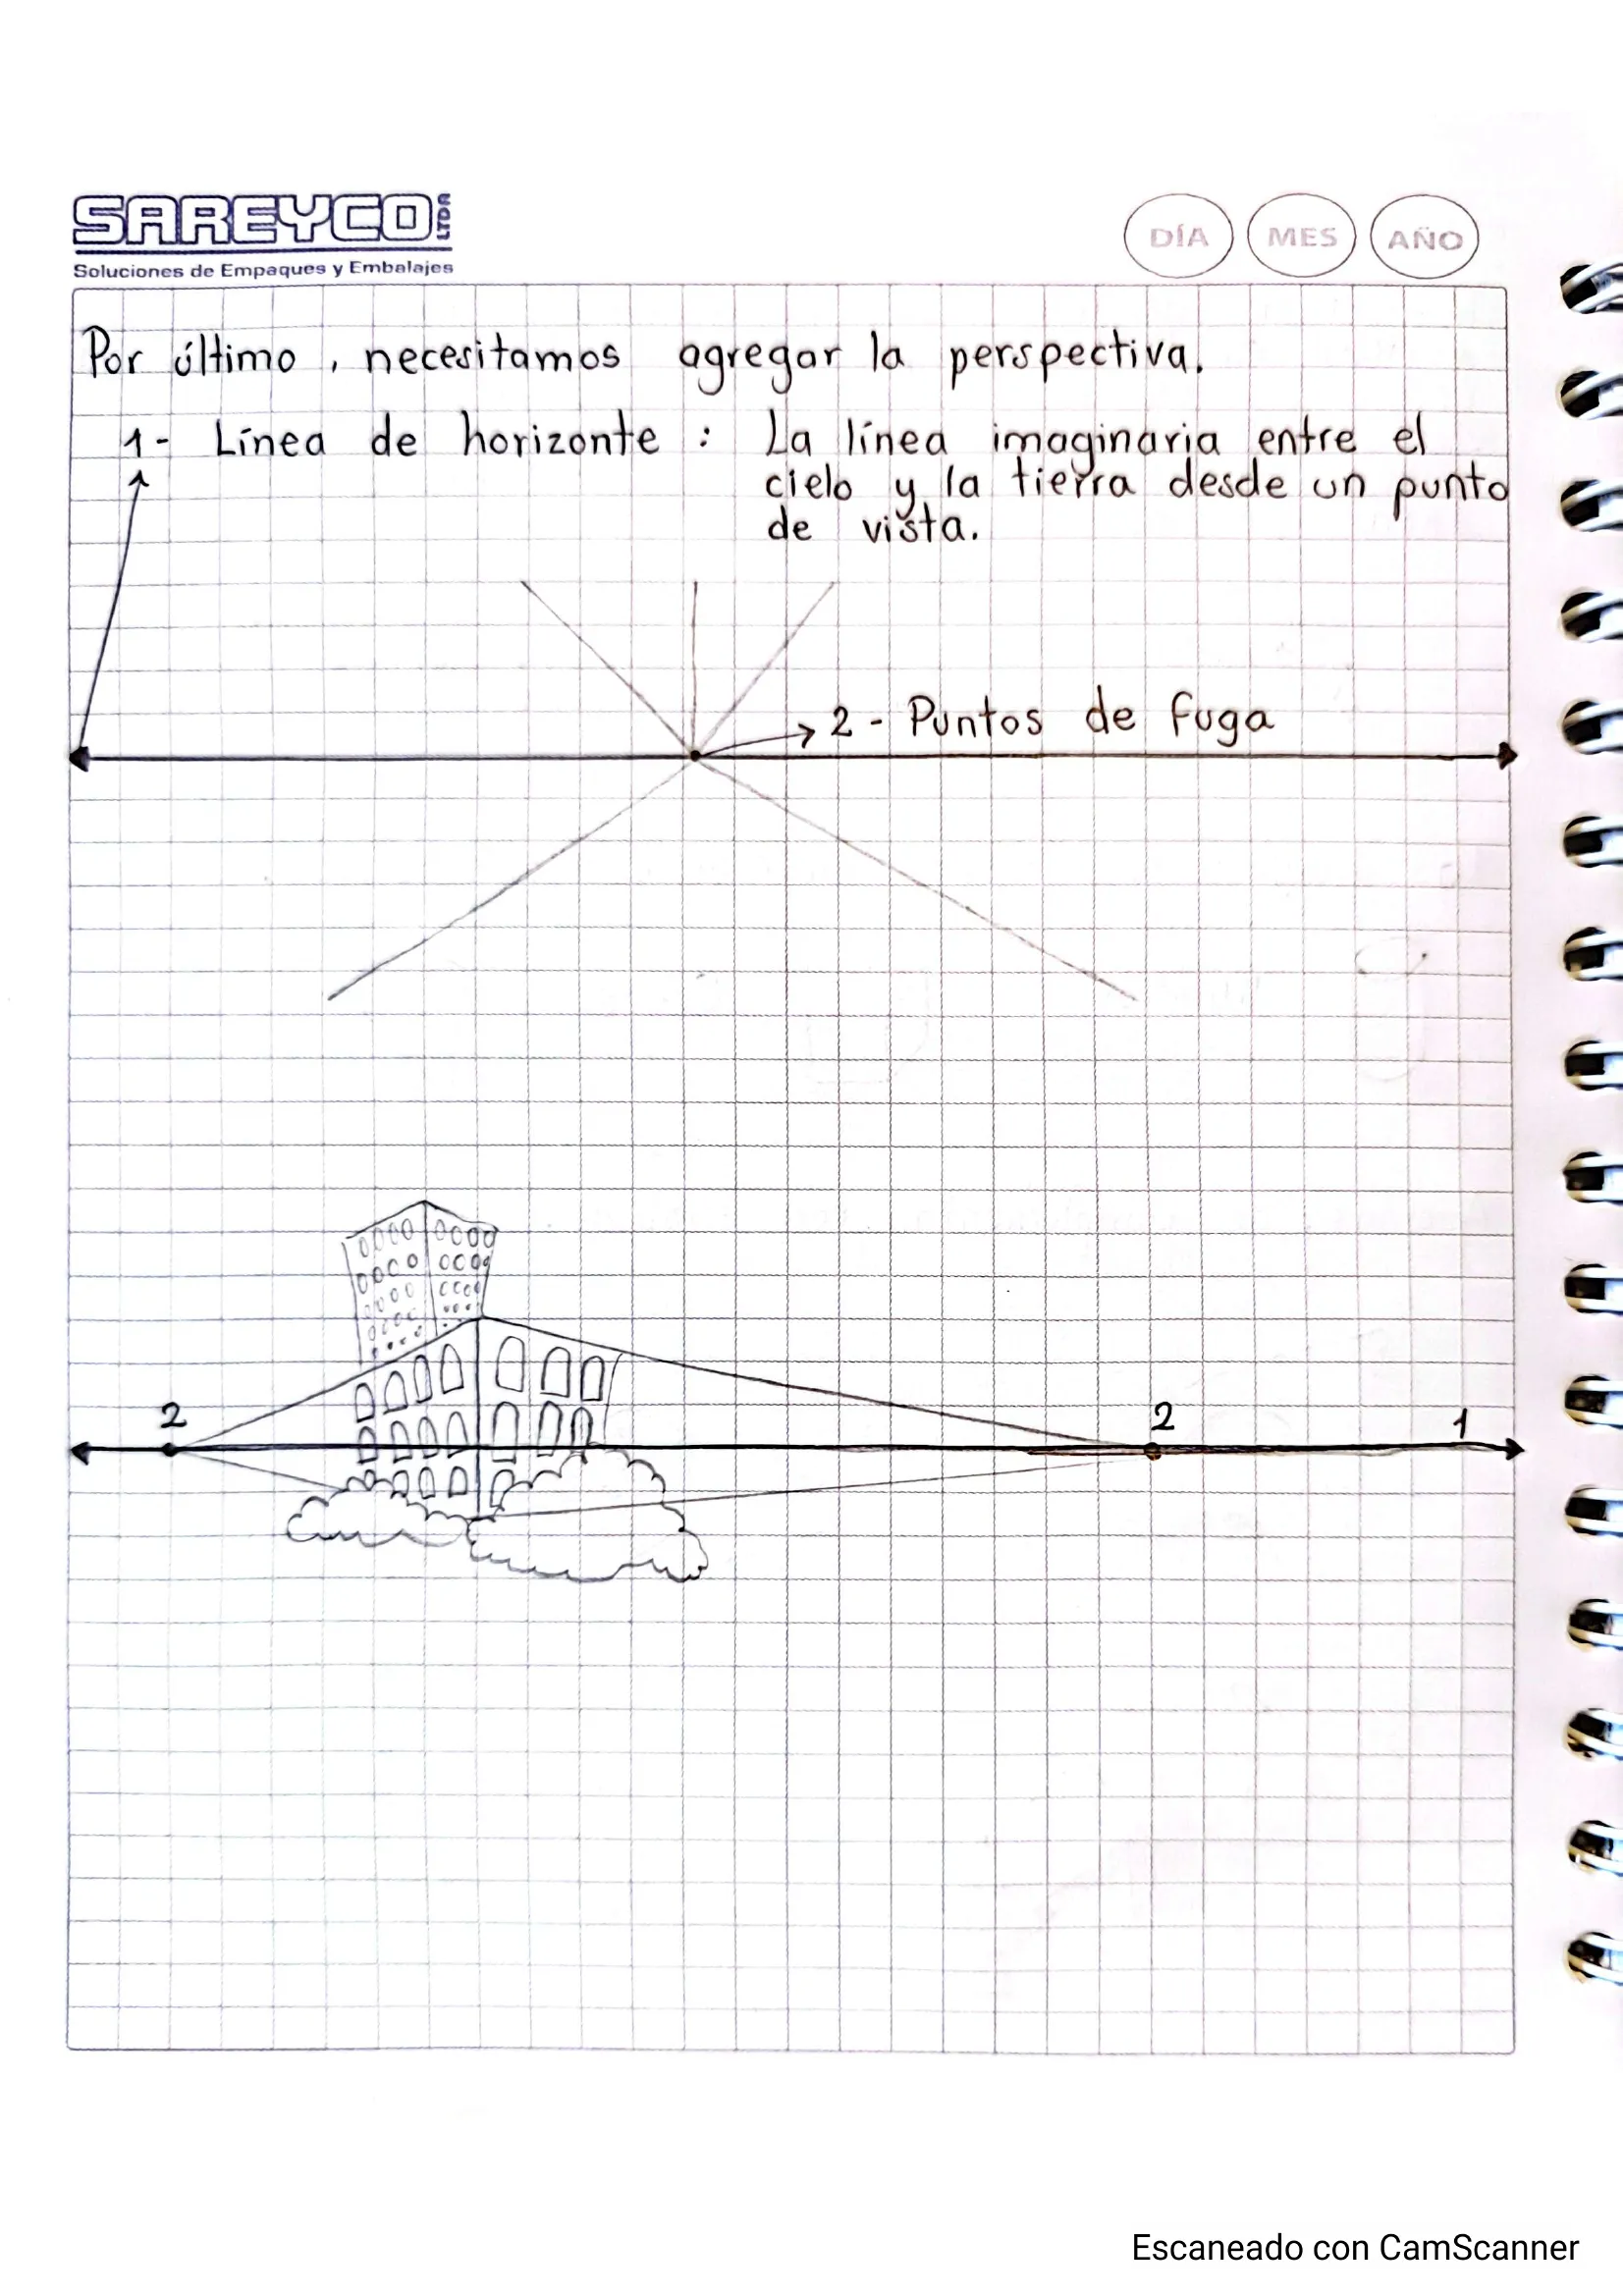 SAREYCO LTDA
Soluciones de Empaques y Embalajes
DÍA MES AÑO
Por último, necesitamos agregar la perspectiva.
1- Línea de horizonte : La línea imaginaria entre el
cielo y la tierra desde un punto
de vista.
2 - Puntos de fuga
2
2
1
Escaneado con CamScanner